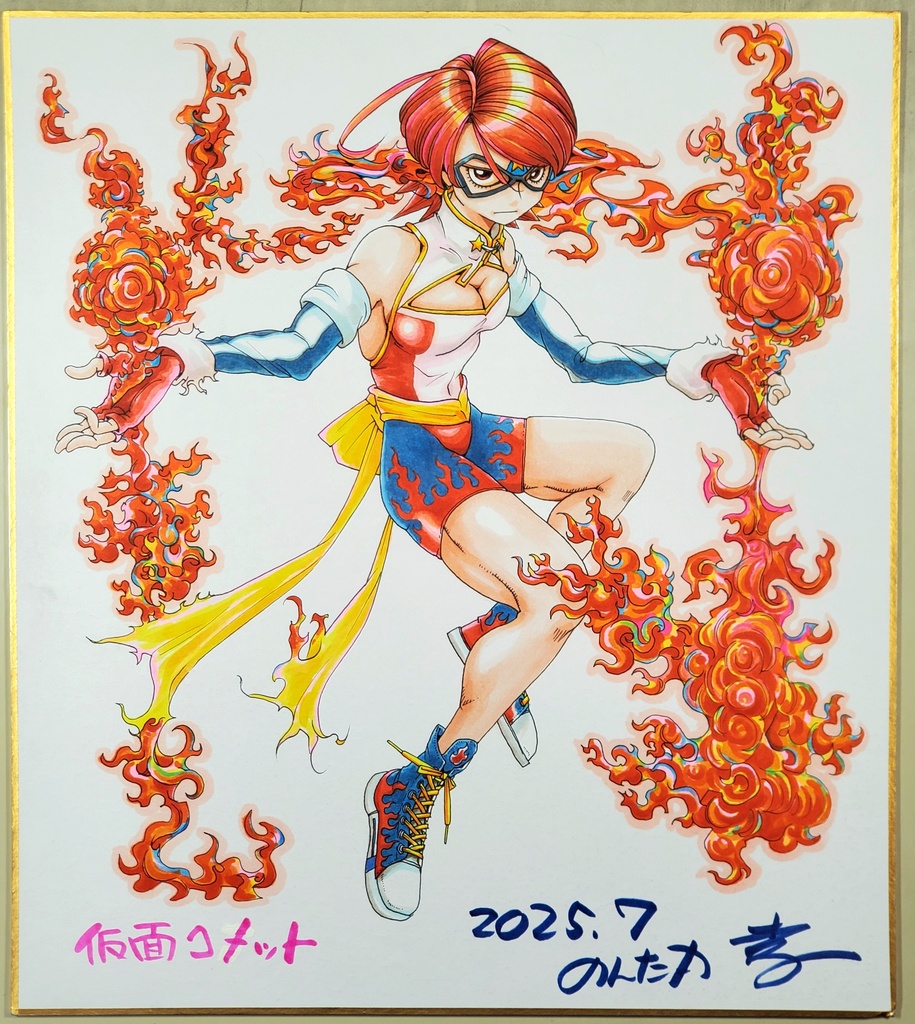 仮面コメット
2025.7
のんたカ 孝